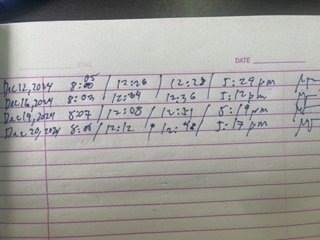 DATE
Dec 12, 2024 8:05 / 12:26 / 12:28 / 5:29 pm
Dec 16, 2024 8:03 / 12:34 / 12:36 / 5:12 pm
Dec 19, 2024 8:07 / 12:08 / 12:31 / 5:19 pm
Dec 20, 2024 8:01 / 12:12 / 12:48 / 5:17 pm